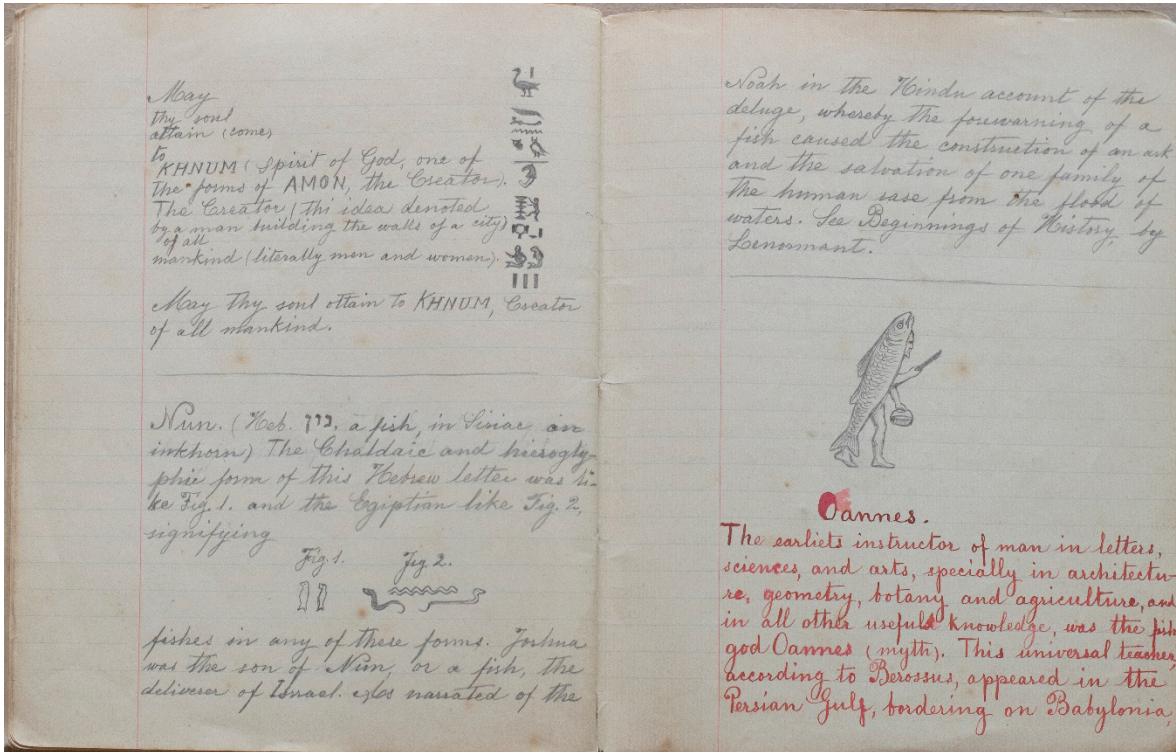 May
thy soul
attain (come)
to
KHNUM (Spirit of God, one of
the forms of AMON, the Creator).
The Creator (thi idea denoted
by a man building the walls of a city)
of all
mankind (literally men and women).
May thy soul attain to KHNUM, Creator
of all mankind.
Nun. (Heb. נון, a fish, in Siriac an
inkhorn) The Chaldaic and hierogly-
phic form of this Hebrew letter was li-
ke Fig. 1. and the Egiptian like Fig. 2,
signifying
Fig. 1. Fig 2.
fishes in any of these forms. Joshua
was the son of Nun, or a fish, the
deliverer of Israel. As narrated of the
Noah in the Hindu account of the
deluge, whereby the forwarning of a
fish caused the construction of an ark
and the salvation of one family of
the human rase from the flood of
waters. See Beginnings of History, by
Lenormant.
Oannes.
The earliets instructor of man in letters,
sciences, and arts, specially in architectu-
re, geometry, botany and agriculture, and
in all other usefuls knowledge, was the fish
god Oannes (myth). This universal teacher,
according to Berossus, appeared in the
Persian Gulf, bordering on Babylonia,